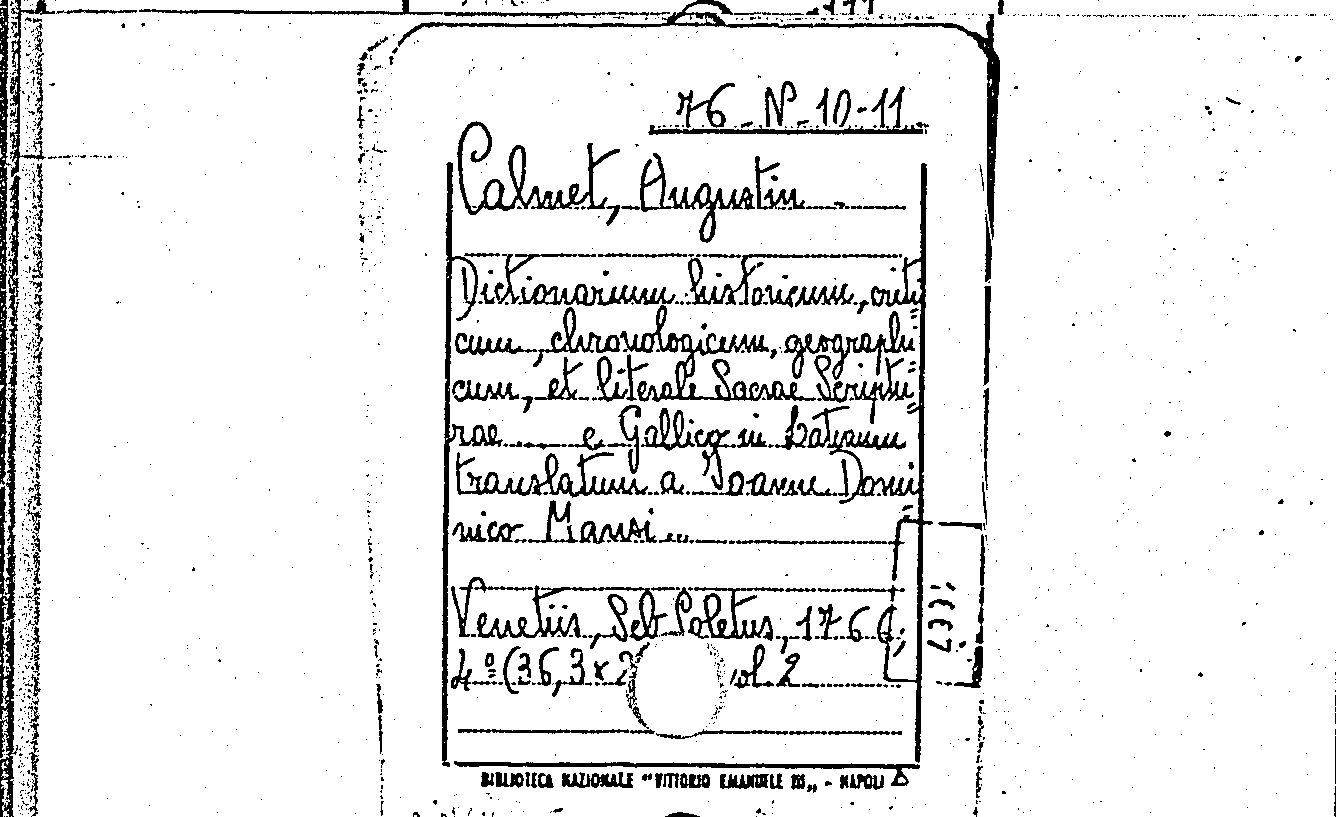 76 - N - 10-11
Calmet, Augustin -
Dictionarium historicum, criti
cum, chronologicum, geographi=
cum, et literale Sacrae Scriptu=
rae ... e Gallico in Latinum
translatum a Joanne Domi=
nico Mansi...
Venetiis, Seb Coletus, 1766,
4º (36,3 x 2 ol. 2
BIBLIOTECA NAZIONALE "VITTORIO EMANUELE III„ - NAPOLI